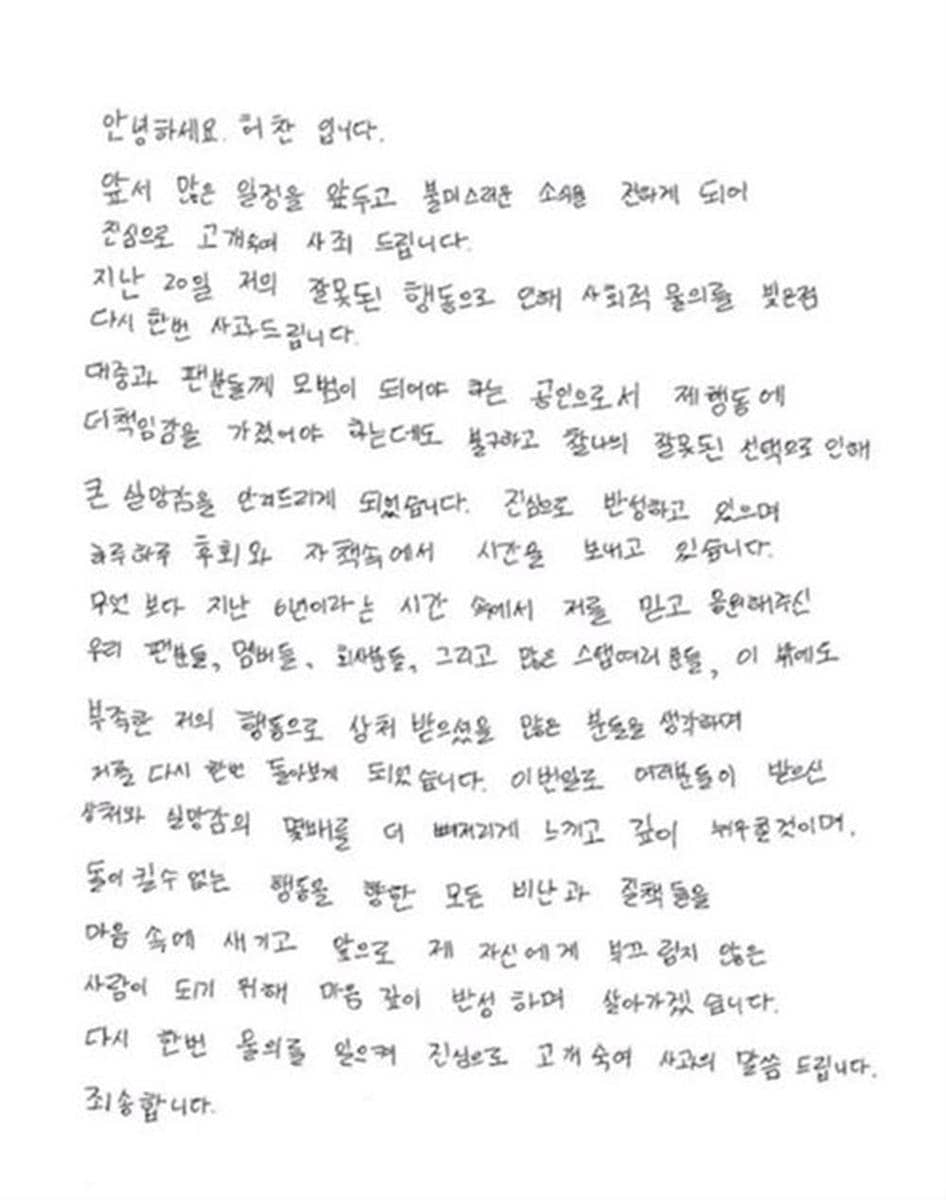 안녕하세요. 허찬 입니다.
앞서 많은 일정을 앞두고 불미스러운 소식을 전하게 되어
진심으로 고개숙여 사죄 드립니다.
지난 20일 저의 잘못된 행동으로 인해 사회적 물의를 빚은점
다시 한번 사과드립니다.
대중과 팬분들께 모범이 되어야 하는 공인으로서 제행동에
더책임감을 가졌어야 하는데도 불구하고 찰나의 잘못된 선택으로 인해
큰 실망감을 안겨드리게 되었습니다. 진심으로 반성하고 있으며
하루하루 후회와 자책속에서 시간을 보내고 있습니다.
무엇 보다 지난 6년이라는 시간 속에서 저를 믿고 응원해주신
우리 팬분들, 멤버들, 회사분들, 그리고 많은 스탭여러분들, 이 밖에도
부족한 저의 행동으로 상처 받으셨을 많은 분들을 생각하며
저를 다시 한번 돌아보게 되었습니다. 이번일로 여러분들이 받으신
상처와 실망감의 몇배를 더 뼈저리게 느끼고 깊이 뉘우칠것이며,
돌이 킬수 없는 행동을 향한 모든 비난과 질책들을
마음 속에 새기고 앞으로 제 자신에게 부끄럽지 않은
사람이 되기 위해 마음 깊이 반성 하며 살아가겠습니다.
다시 한번 물의를 일으켜 진심으로 고개 숙여 사과의 말씀 드립니다.
죄송합니다.